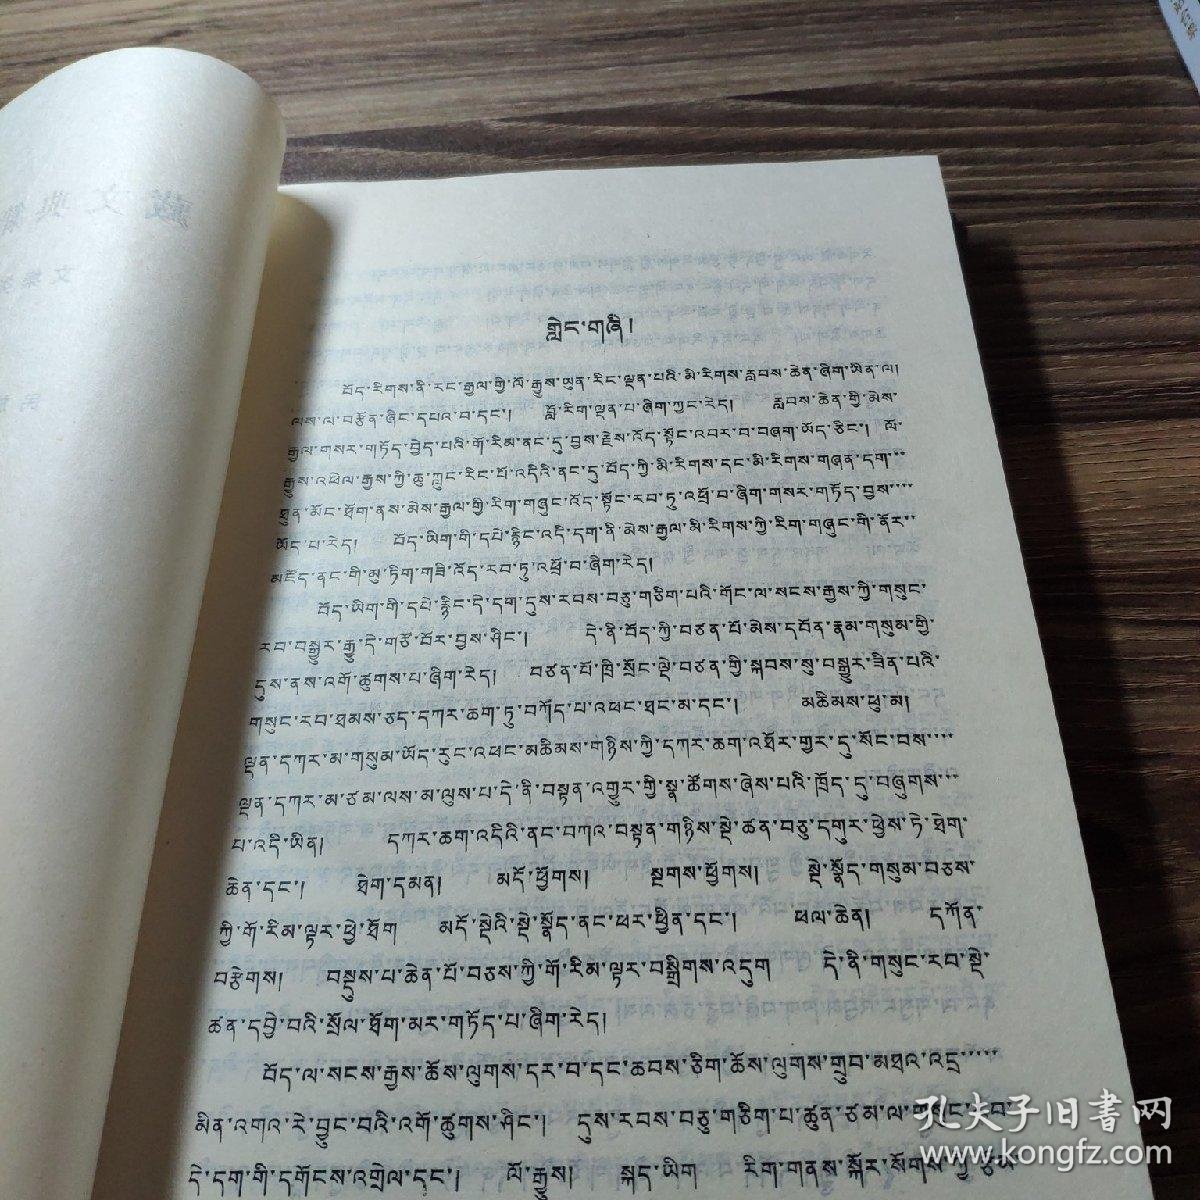 གླེང་གཞི།
བོད་རིགས་ནི་རང་རྒྱལ་གྱི་ལོ་རྒྱུས་ཡུན་རིང་ལྡན་པའི་མི་རིགས་རླབས་ཆེན་ཞིག་ཡིན་ལ།
ལས་ལ་བརྩོན་ཞིང་དཔའ་བ་དང་། བློ་རིག་ལྡན་པ་ཞིག་ཀྱང་རེད། རླབས་ཆེན་གྱི་མེས་
རྒྱལ་གསར་གཏོད་བྱེད་པའི་གོ་རིམ་ནང་དུ་བྱས་རྗེས་འོད་སྟོང་འབར་བ་བཞག་ཡོད་ཅིང་། ལོ་
རྒྱུས་འཕེལ་རྒྱས་ཀྱི་ཆུ་ཀླུང་རིང་པོ་འདིའི་ནང་དུ་བོད་ཀྱི་མི་རིགས་དང་མི་རིགས་གཞན་དག་
ཐུན་མོང་ཐོག་ནས་མེས་རྒྱལ་གྱི་རིག་གཞུང་འོད་སྟོང་རབ་ཏུ་འཕྲོ་བ་ཞིག་གསར་གཏོད་བྱས་
ཡོད་པ་རེད། བོད་ཡིག་གི་དཔེ་རྙིང་འདི་དག་ནི་མེས་རྒྱལ་མི་རིགས་ཀྱི་རིག་གཞུང་གི་ནོར་
མཛོད་ནང་གི་མུ་ཏིག་གཟི་འོད་རབ་ཏུ་འཕྲོ་བ་ཞིག་རེད།
བོད་ཡིག་གི་དཔེ་རྙིང་དེ་དག་དུས་རབས་བཅུ་གཅིག་པའི་གོང་ལ་སངས་རྒྱས་ཀྱི་གསུང་
རབ་བསྒྱུར་རྒྱུ་དེ་གཙོ་བོར་བྱས་ཤིང་། དེ་ནི་བོད་ཀྱི་བཙན་པོ་མེས་དབོན་རྣམ་གསུམ་གྱི་
དུས་ནས་འགོ་ཚུགས་པ་ཞིག་རེད། བཙན་པོ་ཁྲི་སྲོང་ལྡེ་བཙན་གྱི་སྐབས་སུ་བསྒྱུར་ཟིན་པའི་
གསུང་རབ་ཐམས་ཅད་དཀར་ཆག་ཏུ་བཀོད་པ་འཕང་ཐང་མ་དང་། མཆིམས་ཕུ་མ།
ལྡན་དཀར་མ་གསུམ་ཡོད་རུང་འཕང་མཆིམས་གཉིས་ཀྱི་དཀར་ཆག་འཐོར་གྱར་དུ་སོང་བས་
ལྡན་དཀར་མ་ཙམ་ལས་མ་ལུས་པ་དེ་ནི་བསྟན་འགྱུར་གྱི་སྣ་ཚོགས་ཞེས་པའི་ཁྲོད་དུ་བཞུགས་
པ་འདི་ཡིན། དཀར་ཆག་འདིའི་ནང་བཀའ་བསྟན་གཉིས་སྡེ་ཚན་བཅུ་དགུར་ཕྱེས་ཏེ་ཐེག་
ཆེན་དང་། ཐེག་དམན། མདོ་ཕྱོགས། སྔགས་ཕྱོགས། སྡེ་སྣོད་གསུམ་བཅས་
ཀྱི་གོ་རིམ་ལྟར་ཕྱེ་ཐོག མདོ་སྡེའི་སྡེ་སྣོད་ནང་ཕར་ཕྱིན་དང་། ཕལ་ཆེན། དཀོན་
བརྩེགས། བསྡུས་པ་ཆེན་པོ་བཅས་ཀྱི་གོ་རིམ་ལྟར་བསྒྲིགས་འདུག དེ་ནི་གསུང་རབ་སྡེ་
ཚན་དབྱེ་བའི་སྲོལ་ཐོག་མར་གཏོད་པ་ཞིག་རེད།
བོད་ལ་སངས་རྒྱས་ཆོས་ལུགས་དར་བ་དང་ཆབས་ཅིག་ཆོས་ལུགས་གྲུབ་མཐའ་འདྲ་
མིན་འགའ་རེ་བྱུང་བའི་འགོ་ཚུགས་ཤིང་། དུས་རབས་བཅུ་གཅིག་པ་ཚུན་ཙམ་ལ་
དེ་དག་གི་དགོངས་འགྲེལ་དང་། ལོ་རྒྱུས། སྐད་ཡིག རིག་གནས་སྐོར་སོགས་ཀྱི་
孔夫子旧書网
www.kongfz.com